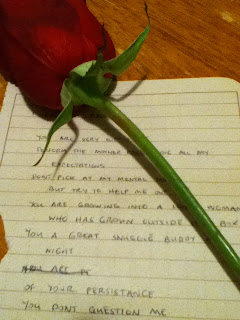 YOU ARE VERY
PERFORM THE MOTHER ALL MY
EXPECTATIONS
DONT PICK AT MY MENTAL
BUT TRY TO HELP ME
YOU ARE GROWING INTO A WOMAN
WHO HAS GROWN OUTSIDE
YOU A GREAT SNUGGLE BUDDY
NIGHT
YOU ARE
OF YOUR PERSISTANCE
YOU DONT QUESTION ME